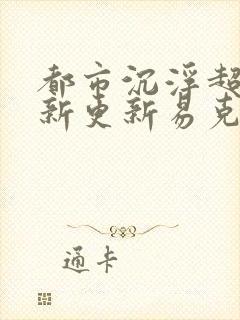 都市沉浮超
新更新易克
通卡